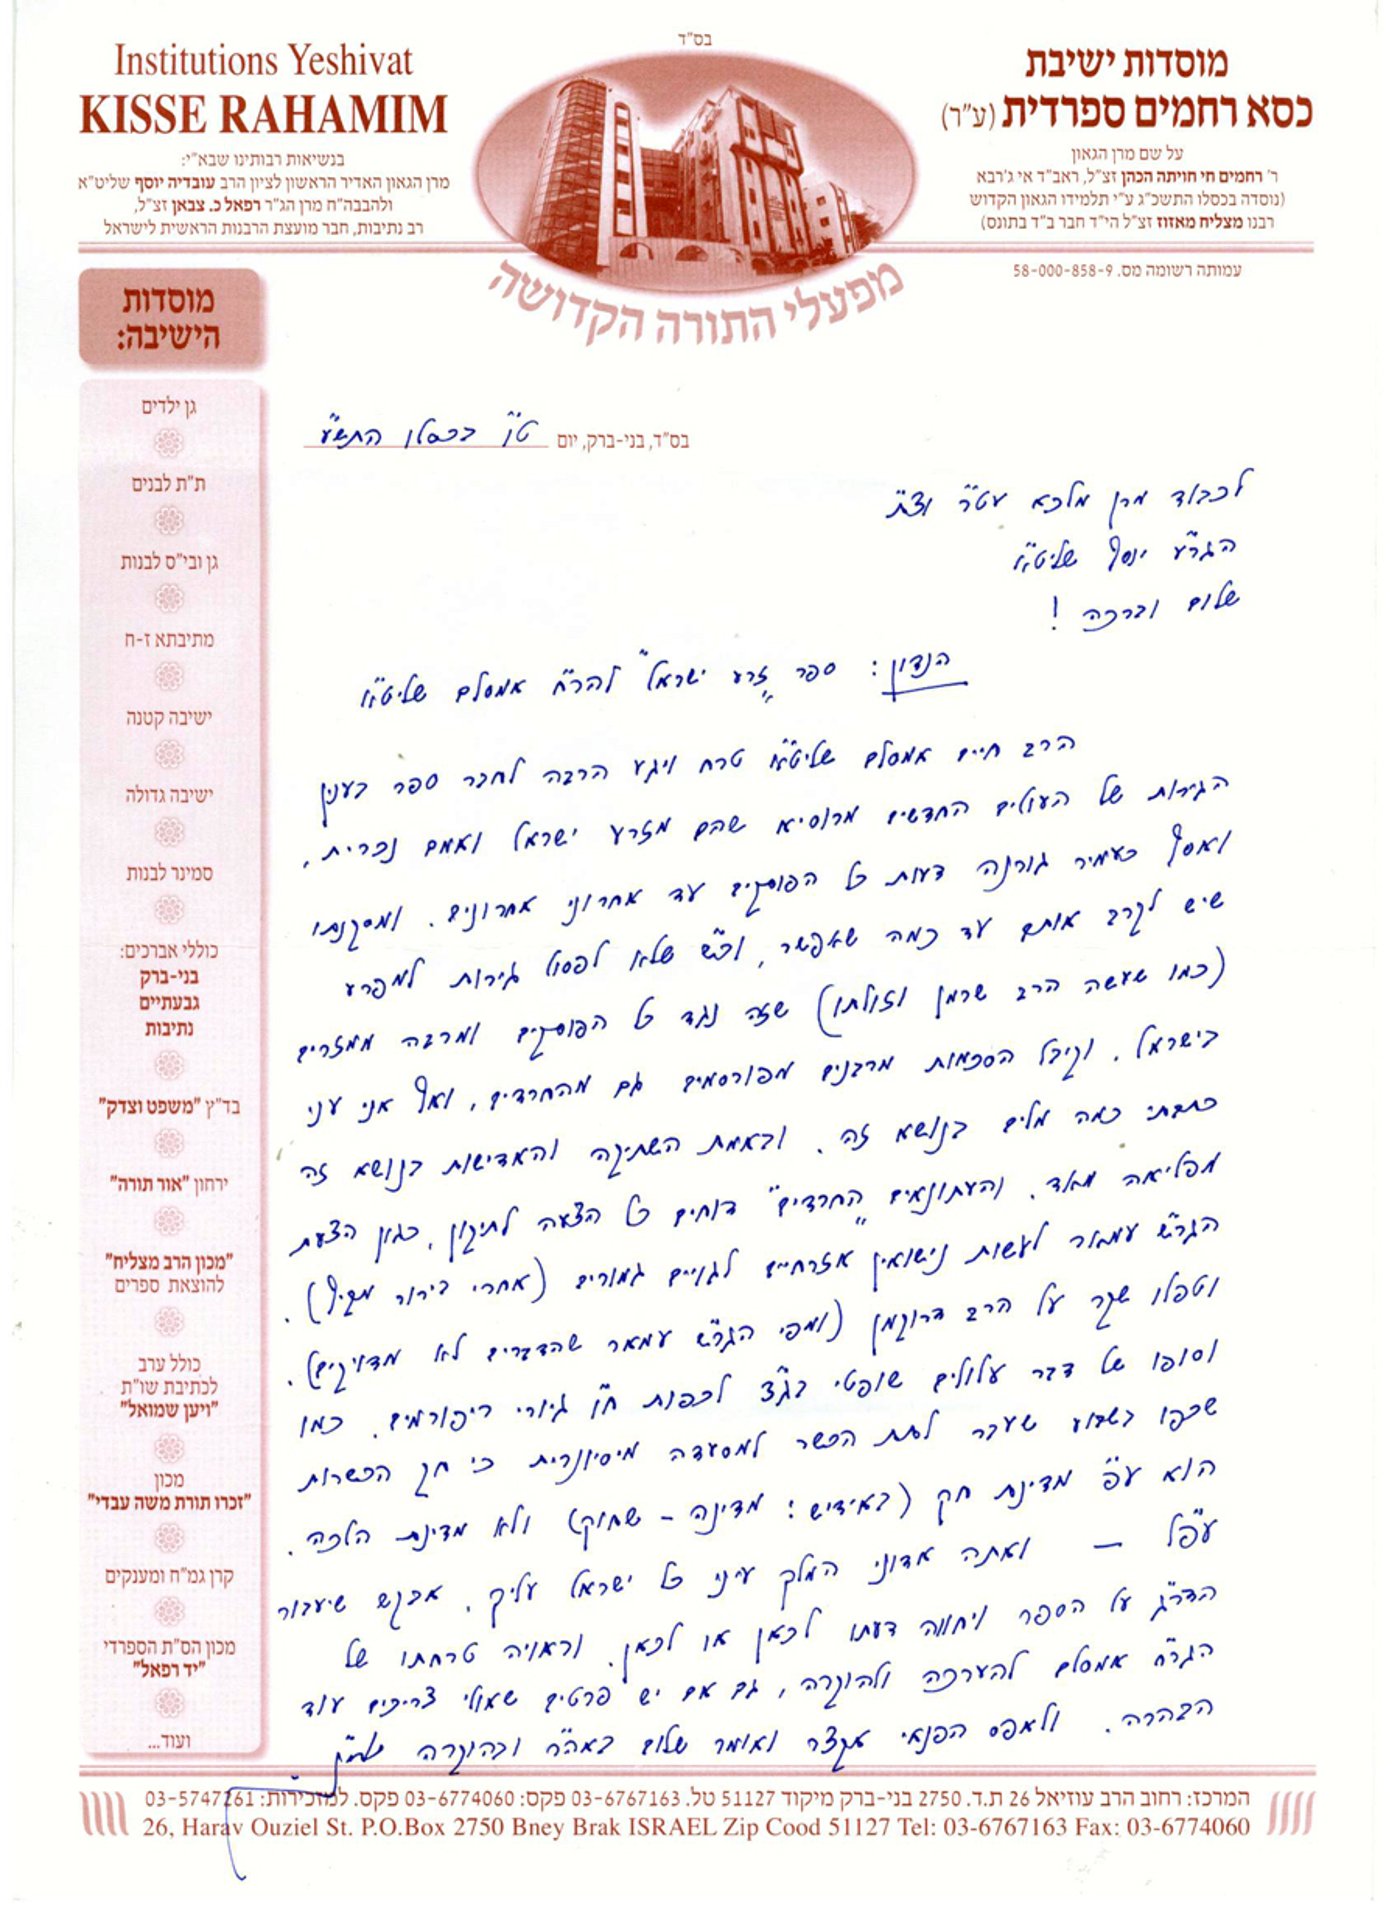 בס"ד
Institutions Yeshivat
KISSE RAHAMIM
בנשיאות רבותינו שבא"י:
מרן הגאון האדיר הראשון לציון הרב עובדיה יוסף שליט"א
ולהבבה"ח מרן הג"ר רפאל כ. צבאן זצ"ל,
רב נתיבות, חבר מועצת הרבנות הראשית לישראל
מוסדות ישיבת
כסא רחמים ספרדית (ע"ר)
על שם מרן הגאון
ר' רחמים חי חויתה הכהן זצ"ל, ראב"ד אי ג'רבא
(נוסדה בכסלו התשכ"ג ע"י תלמידו הגאון הקדוש
רבנו מצליח מאזוז זצ"ל הי"ד חבר ב"ד בתונס)
עמותה רשומה מס. 58-000-858-9
מפעלי התורה הקדושה
מוסדות
הישיבה:
גן ילדים
ת"ת לבנים
גן ובי"ס לבנות
מתיבתא ז-ח
ישיבה קטנה
ישיבה גדולה
סמינר לבנות
כוללי אברכים:
בני-ברק
גבעתיים
נתיבות
בד"ץ "משפט וצדק"
ירחון "אור תורה"
"מכון הרב מצליח"
להוצאת ספרים
כולל ערב
לכתיבת שו"ת
"ויען שמואל"
מכון
"זכרו תורת משה עבדי"
קרן גמ"ח ומענקים
מכון הס"ת הספרדי
"יד רפאל"
ועוד...
בס"ד, בני-ברק, יום ט"ו בכסלו התש"ע
לכבוד מרן מלכא עט"ר וצ"ת
הגר"ע יוסף שליט"א
שלום וברכה!
הנדון: ספר "זרע ישראל" להר"ח אמסלם שליט"א
הרב חיים אמסלם שליט"א טרח ויגע הרבה לחבר ספר בענין
הגירות של העולים החדשים מרוסיא שהם מזרע ישראל ואמם נכרית,
ואסף כעמיר גורנה דעות כל הפוסקים עד אחרוני אחרונים. ומסקנתו
שיש לקרב אותם עד כמה שאפשר, וכ"ש שלא לפסול גירות למפרע
(כמו שעשה הרב שרמן וזולתו) שזה נגד כל הפוסקים ומרבה ממזרים
בישראל. וקיבל הסכמות מרבנים מפורסמים גם מהחרדים, ואף אני עני
כתבתי כמה מלים בנושא זה. ובאמת השתיקה והאדישות בנושא זה
מפליאה מאד. והעתונאים "החרדים" דוחים כל הצעה לתיקון, כגון הצעת
הגר"ש עמאר לעשות נישואין אזרחיים לגויים גמורים (אחרי בירור מקיף).
וטפלו שקר על הרב דרוקמן (ומפי הגר"ש עמאר שהדברים לא מדוייקים).
וסופו של דבר עלולים שופטי בג"צ לכפות ח"ו גיורי ריפורמים. כמו
שכפו בשבוע שעבר לתת הכשר למסעדה מיסיונרית כי חק הכשרות
הוא ע"פ מדינת חק (באידיש: מדינה - שחוק) ולא מדינת הלכה.
עפ"ל – ואתה אדוני המלך עיני כל ישראל עליך. אבקש שיעבור
הדר"ג על הספר ויחווה דעתו לכאן או לכאן. וראויה טרחתו של
הגר"ח אמסלם להערכה ולהוקרה, גם אם יש פרטים שאולי צריכים עוד
הבהרה. ולאפס הפנאי אקצר ואומר שלום באה"ר ובהוקרה
המרכז: רחוב הרב עוזיאל 26 ת.ד. 2750 בני-ברק מיקוד 51127 טל. 03-6767163 פקס: 03-6774060 פקס. למזכירות: 03-5747261
26, Harav Ouziel St. P.O.Box 2750 Bney Brak ISRAEL Zip Cood 51127 Tel: 03-6767163 Fax: 03-6774060